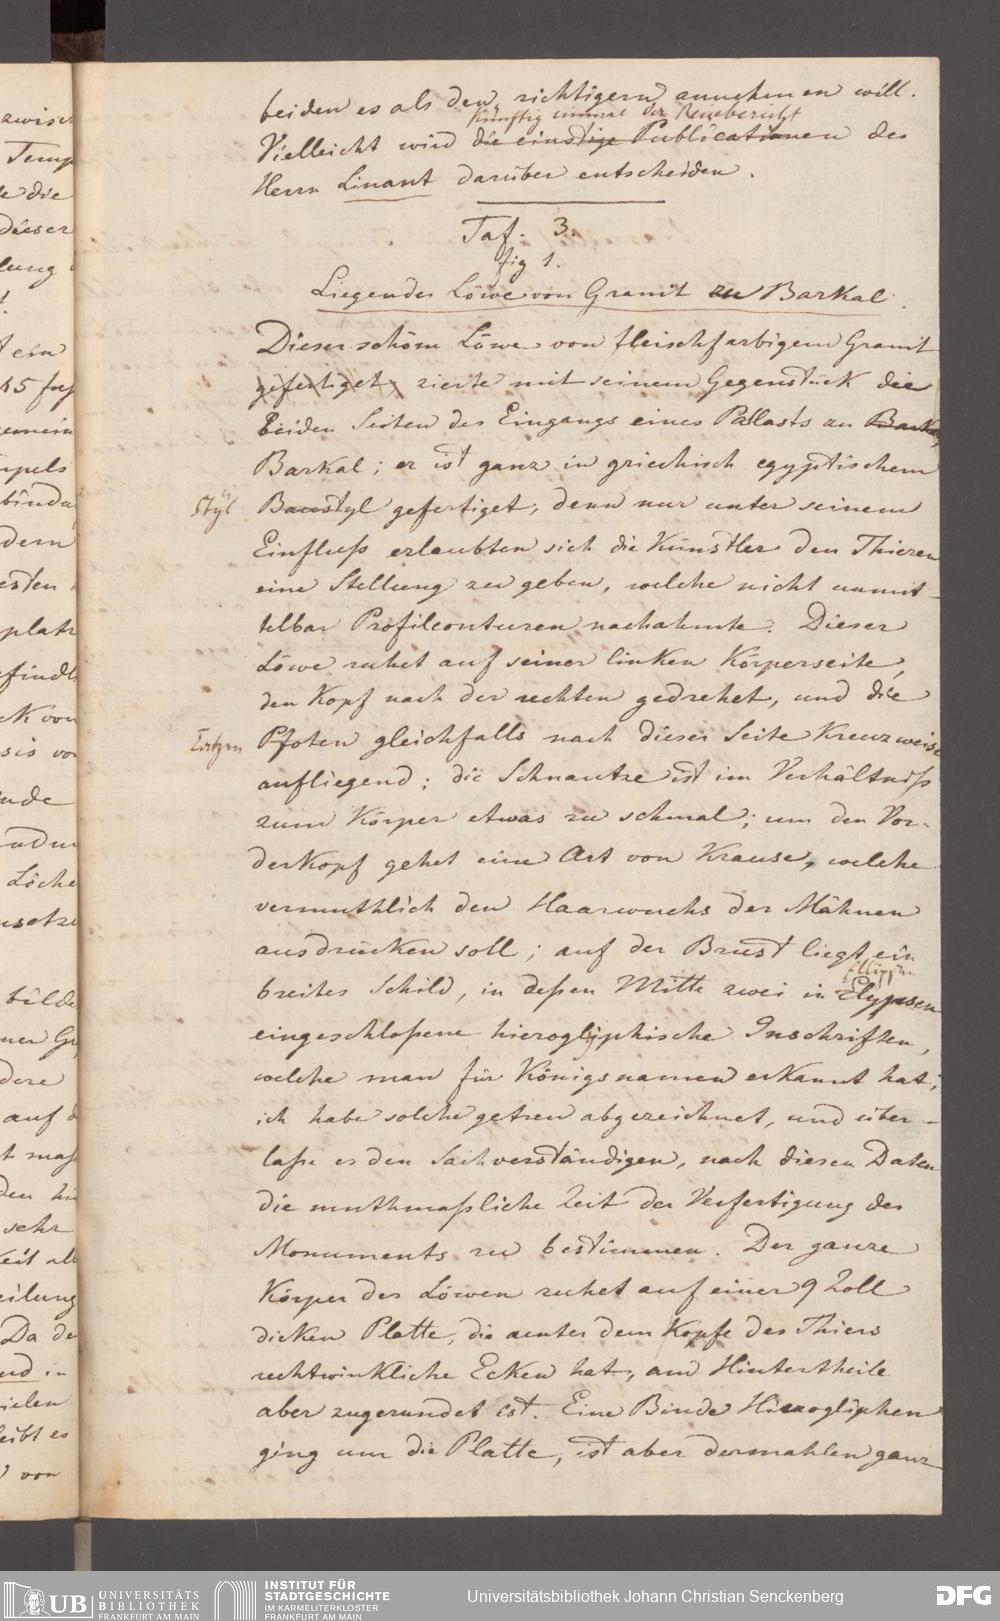 beiden es als den richtigern annehmen will.
künftig einmal der Reisebericht
Vielleicht wird die einstige Publicationen des
Herrn Linant darüber entscheiden.
Taf. 3.
fig 1.
Liegender Löwe von Granit zu Barkal.
Dieser schöne Löwe von fleischfarbigem Granit
gefertiget, zierte mit seinem Gegenstück die
beiden Seiten des Eingangs eines Pallasts zu Barka,
Barkal; er ist ganz in griechisch egyptischem
Styl
Baustyl gefertiget, denn nur unter seinem
Einfluß erlaubten sich die Künstler den Thieren
eine Stellung zu geben, welche nicht unmit-
telbar Profilconturen nachahmte. Dieser
Löwe ruhet auf seiner linken Körperseite,
den Kopf nach der rechten gedrehet, und die
Tatzen
Pfoten gleichfalls nach dieser Seite Kreuzweise
aufliegend; die Schnautze ist im Verhältniß
zum Körper etwas zu schmal; um den Vor-
derkopf gehet eine Art von Krause, welche
vermuthlich den Haarwuchs der Mähnen
ausdrücken soll; auf der Brust liegt ein
Ellipsen
breites Schild, in deßen Mitte zwei in Elypsen
eingeschloßene hieroglyphische Inschriften,
welche man für Königsnamen erkannt hat;
ich habe solche getreu abgezeichnet, und über-
laße es den Sachverständigen, nach diesen Daten
die muthmaßliche Zeit der Verfertigung des
Monuments zu bestimmen. Der ganze
Körper des Löwen ruhet auf einer 9 Zoll
dicken Platte, die unter dem Kopfe des Thiers
rechtwinkliche Ecken hat, am Hintertheile
aber zugerundet ist. Eine Binde Hierogliphen
ging um die Platte, ist aber dermahlen ganz
Temp
die
dieser
lung
ein
45
upels
dern
esten
platz
von
Löche
bilde
dere
auf
sehr
Da de
in
vielen
es
von
UB
UNIVERSITÄTS
BIBLIOTHEK
FRANKFURT AM MAIN
INSTITUT FÜR
STADTGESCHICHTE
IM KARMELITERKLOSTER
FRANKFURT AM MAIN
Universitätsbibliothek Johann Christian Senckenberg
DFG